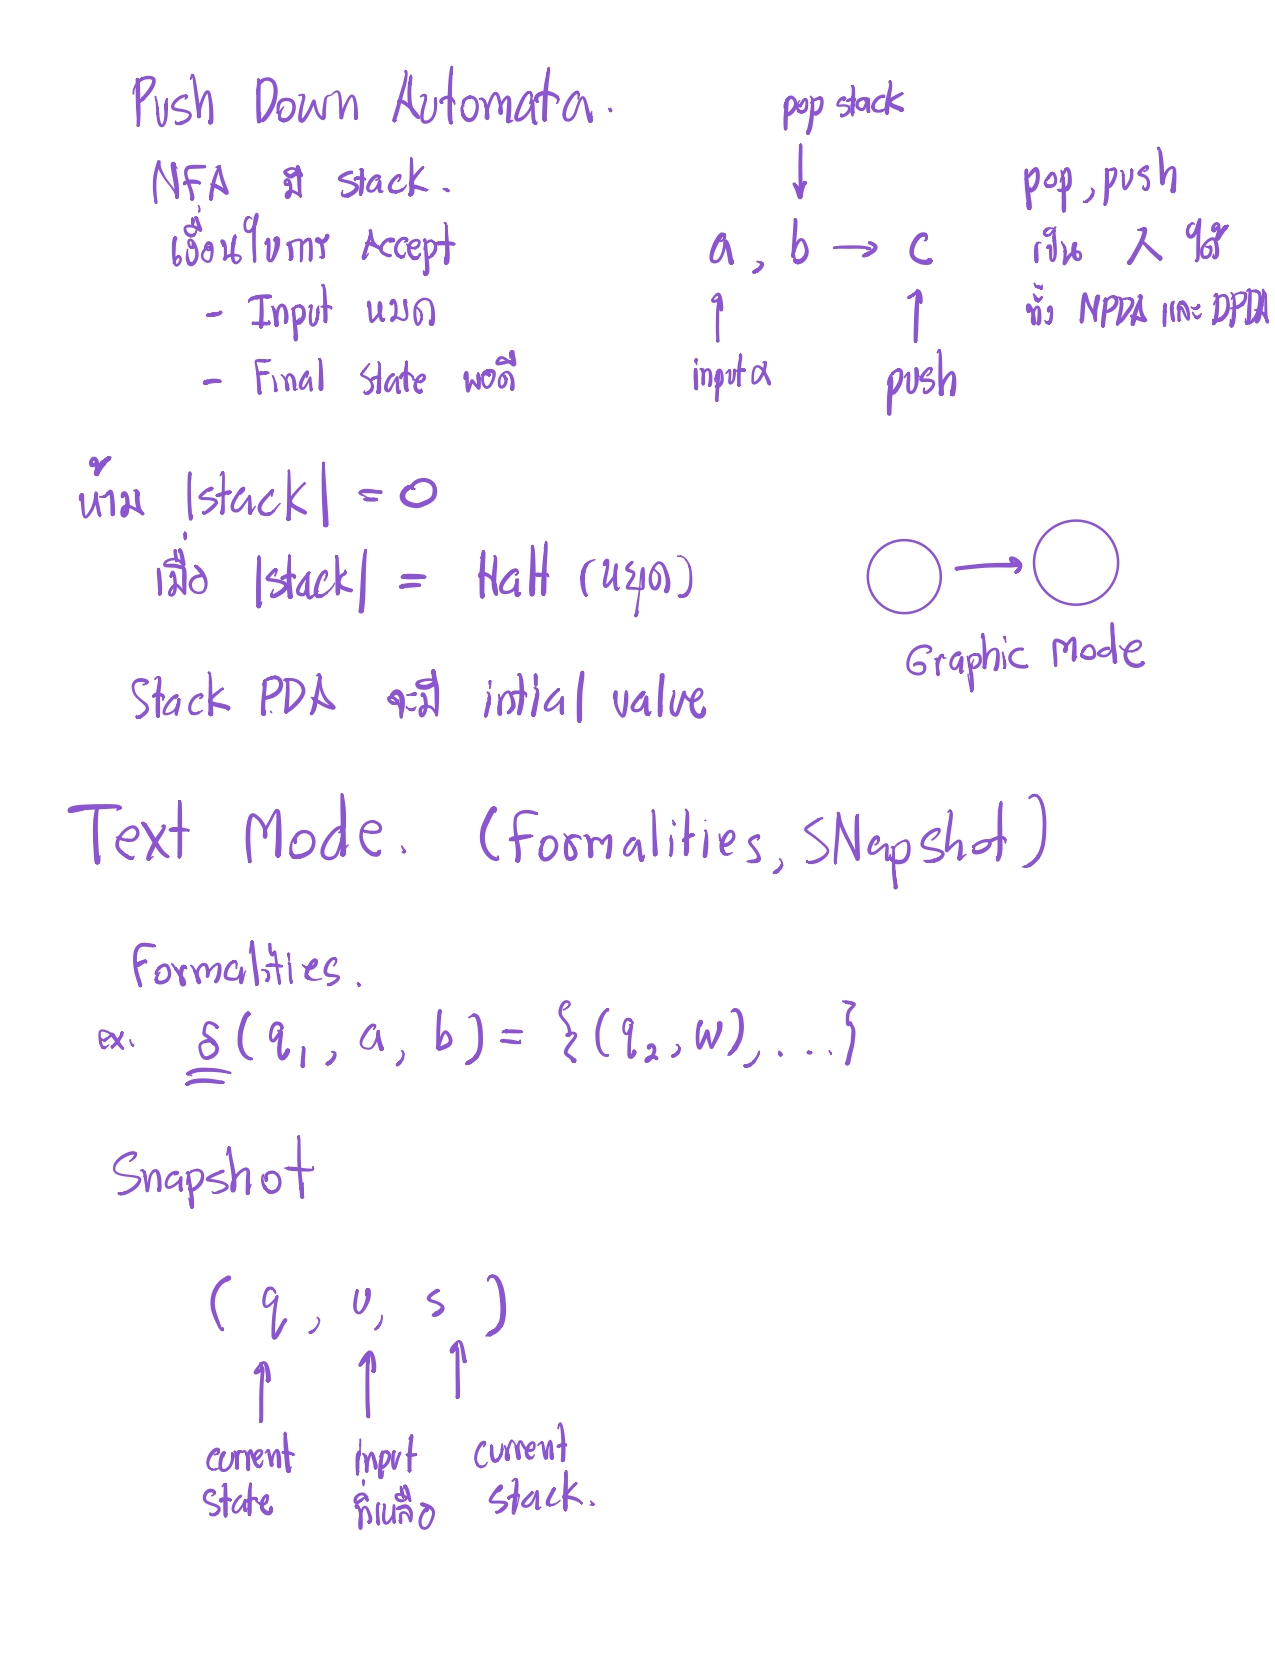 Push Down Automata.
NFA มี stack.
เงื่อนไขการ Accept
- Input หมด
- Final state พอดี
pop stack
a , b → c
input α
push
pop, push
เป็น λ ได้
ทั้ง NPDA และ DPDA
ห้าม |stack| = 0
เมื่อ |stack| = Halt (หยุด)
Graphic Mode
Stack PDA จะมี intial value
Text Mode. (Formalities, SNapshot)
Formalities.
ex. δ(q₁, a, b) = {(q₂, w), ...}
Snapshot
(q, u, s)
current state
input ที่เหลือ
current stack.